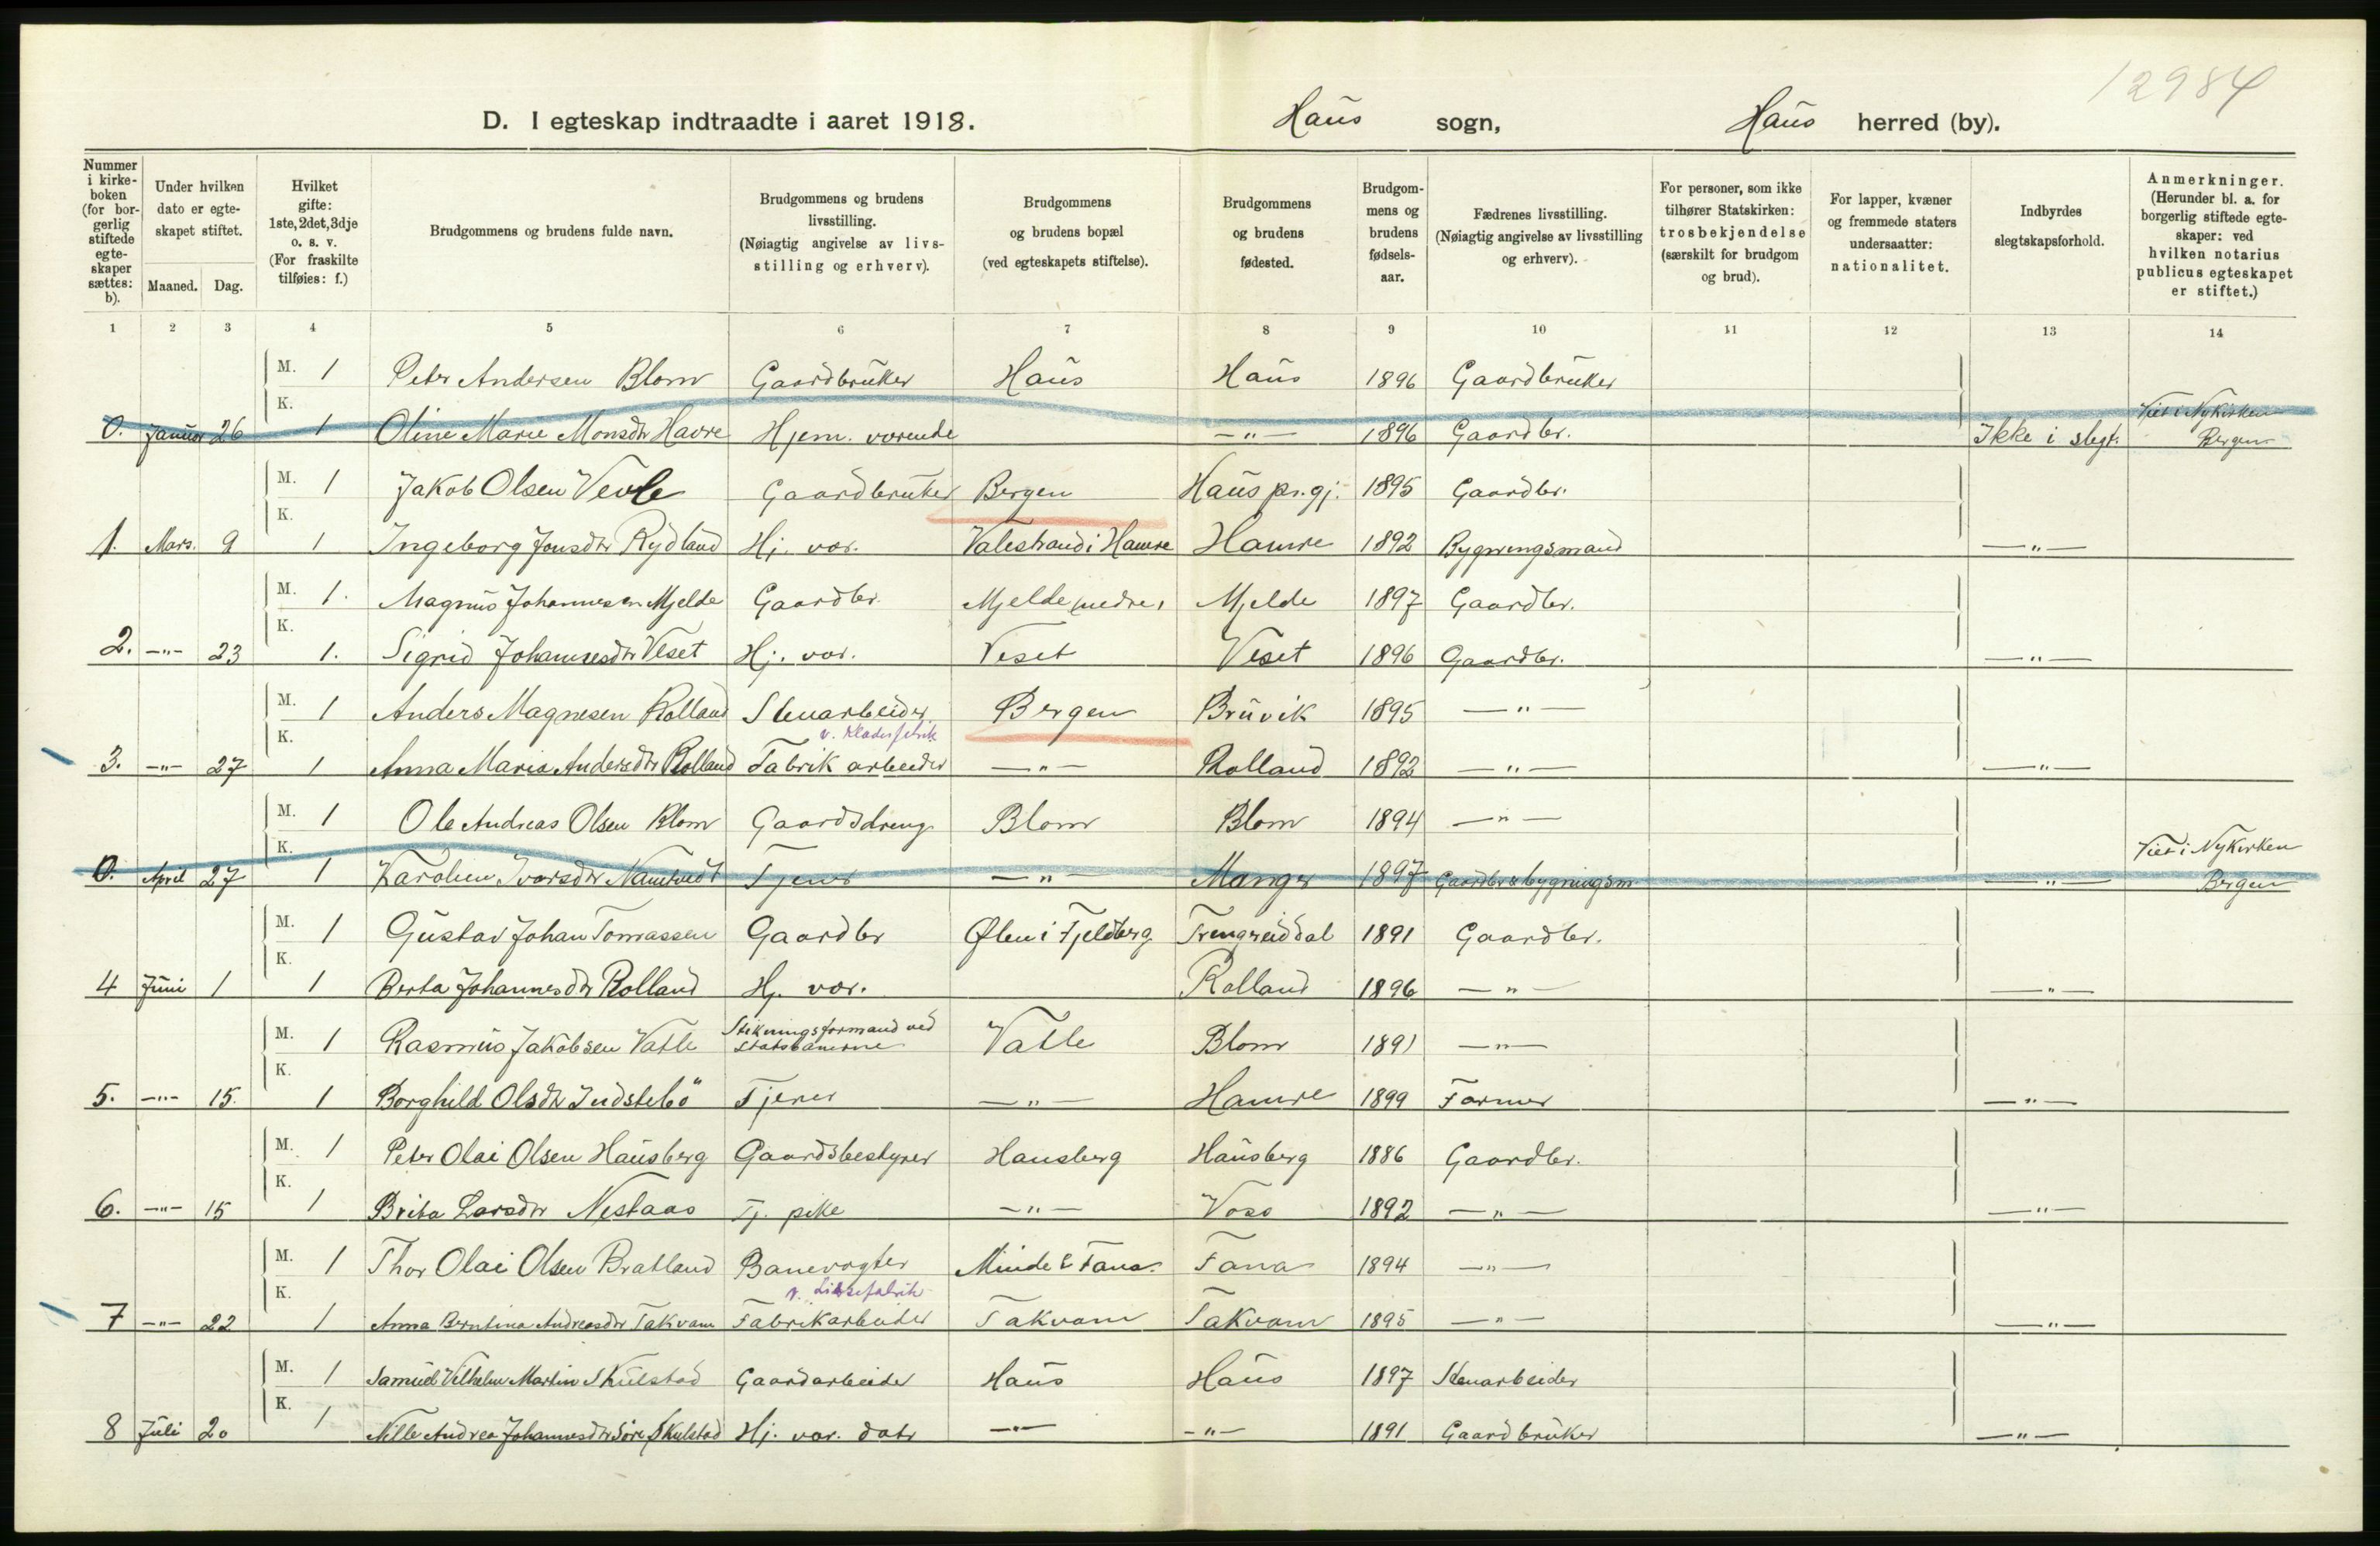 12984
D. I egteskap indtraadte i aaret 1918. Haus sogn, Haus herred (by).
Nummer i kirke-boken (for bor-gerlig stiftede egte-skaper sættes: b).
Under hvilken dato er egte-skapet stiftet.
Maaned. Dag.
Hvilket gifte: 1ste, 2det, 3dje o. s. v. (For fraskilte tilføies: f.)
Brudgommens og brudens fulde navn.
Brudgommens og brudens livsstilling. (Nøiagtig angivelse av livs-stilling og erhverv).
Brudgommens og brudens bopæl (ved egteskapets stiftelse).
Brudgommens og brudens fødested.
Brudgom-mens og brudens fødsels-aar.
Fædrenes livsstilling. (Nøiagtig angivelse av livsstilling og erhverv).
For personer, som ikke tilhører Statskirken: trosbekjendelse (særskilt for brudgom og brud).
For lapper, kvæner og fremmede staters undersaatter: nationalitet.
Indbyrdes slegtskapsforhold.
Anmerkninger. (Herunder bl. a. for borgerlig stiftede egte-skaper: ved hvilken notarius publicus egteskapet er stiftet.)
1 2 3 4 5 6 7 8 9 10 11 12 13 14
M. 1 Peter Andersen Blom Gaardbruker Haus Haus 1896 Gaardbruker
K.
0. Januar 26 1 Oline Marie Monsdtr Havre Hjem. værende -"- 1896 Gaardbr. Ikke i slegt. Viet i Nykirken Bergen
M. 1 Jakob Olsen Vevle Gaardbruker Bergen Haus pr.gj. 1895 Gaardbr.
K.
1. Mars. 9 1 Ingeborg Jonsdtr Rydland Hj. vær. Valestrand i Hamre Hamre 1892 Bygningsmand -"-
M. 1. Magnus Johannesen Mjelde Gaardbr. Mjelde nedre, Mjelde 1897 Gaardbr.
K.
2. -"- 23 1. Sigrid Johannesdtr Veset Hj. vær. Veset Veset 1896 Gaardbr. -"-
M. 1 Anders Magnesen Rolland Stenarbeider Bergen Bruvik 1895 -"-
K. v. Kladesfabrik
3. -"- 27 1 Anna Maria Andersdtr Rolland Fabrik arbeider -"- Rolland 1892 -"- -"-
M. 1 Ole Andreas Olsen Blom Gaardsdreng Blom Blom 1894 -"-
K.
0. April 27 1 Karoline Ivarsdtr Namtvedt Tjener -"- Manger 1897 Gaardbr & bygningsm -"- Viet i Nykirken Bergen
M. 1 Gustav Johan Tomassen Gaardbr Ølen i Fjeldberg Trengreiddal 1891 Gaardbr.
K.
4 Juni 1 1 Berta Johannesdtr Rolland Hj. vær. Rolland 1896 -"- -"-
M. 1 Rasmus Jakobsen Vatle Stikningsformand ved statsbanerne Vatle Blom 1891 -"-
K.
5. -"- 15. 1 Borghild Olsdtr Indstebö Tjener -"- Hamre 1899 Farmer -"-
M. 1 Peter Olai Olsen Hausberg Gaardsbestyrer Hausberg Hausberg 1886 Gaardbr.
K.
6. -"- 15 1 Brita Larsdtr Nestaas Tj. pike -"- Voss 1892 -"- -"-
M. 1 Thor Olai Olsen Bratland Banevogter Minde i Fana. Fana 1894 -"-
K. v. Lissefabrik
7 -"- 22 1 Anna Berntina Andreasdtr Takvam Fabrikarbeider Takvam Takvam 1895 -"- -"-
M. 1 Samuel Vilhelm Martin Skulstad Gaardarbeider Haus Haus 1897 Stenarbeider
K.
8 Juli 20 1 Nille Andrea Johannesdtr Søre Skulstad Hj. vær. datr -"- -"- 1891 Gaardbruker -"-